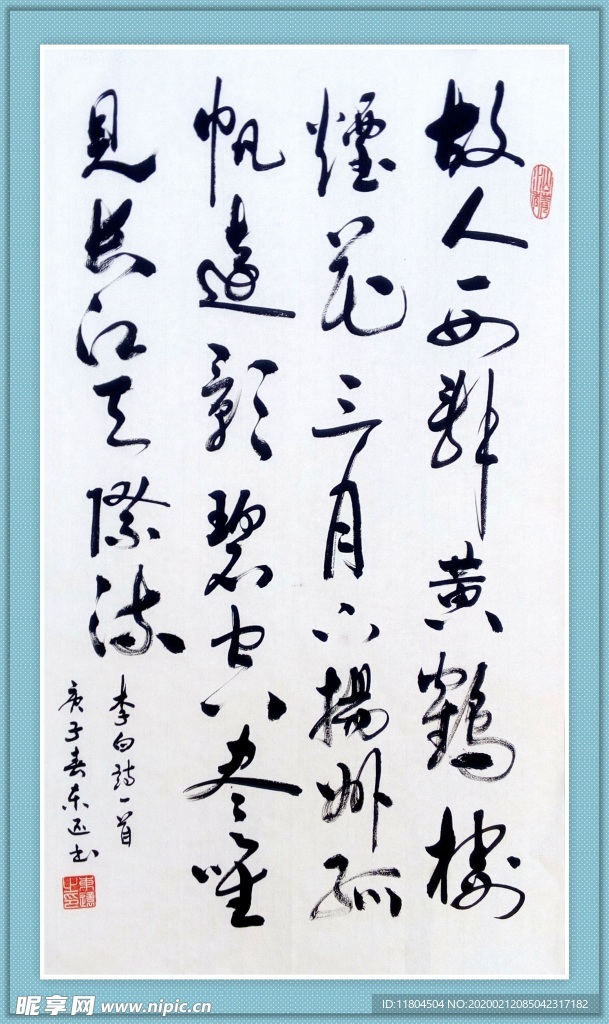 故人西辞黄鶴楼
煙花三月下揚州孤
帆遠影碧空尽唯
見长江天際流
李白詩一首
庚子春东书
昵享网 www.nipic.cn
ID:11804504 NO:20200212085042317182